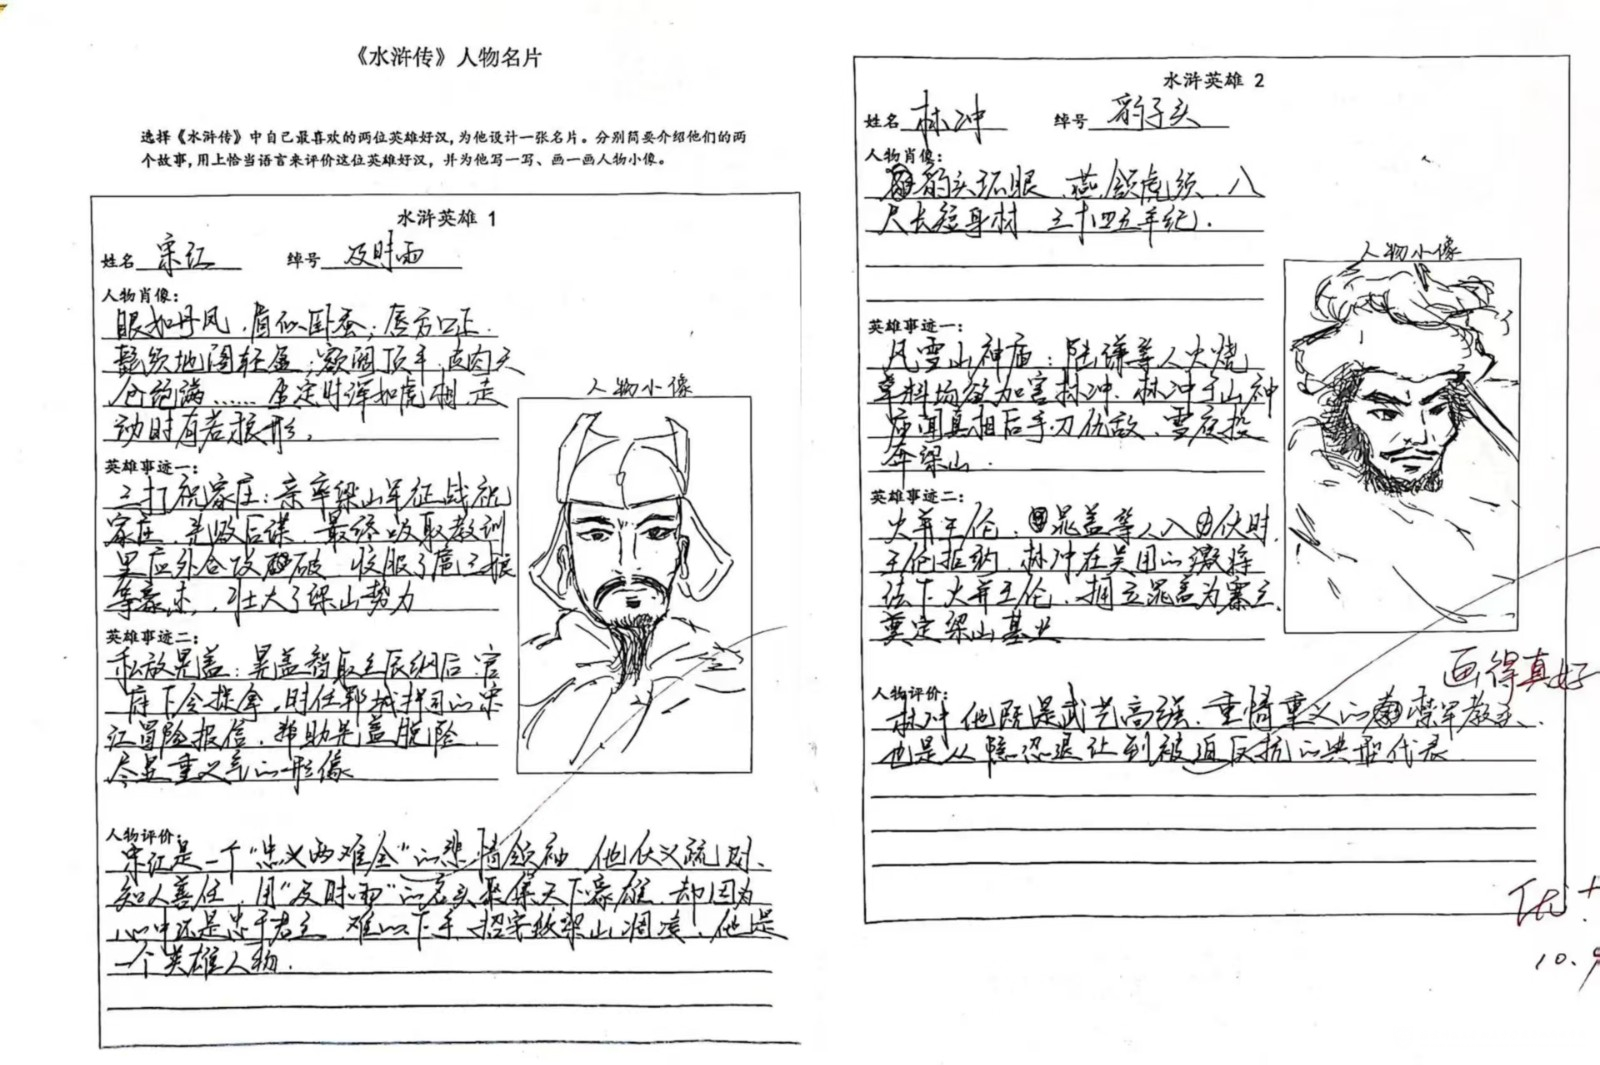 《水浒传》人物名片
选择《水浒传》中自己最喜欢的两位英雄好汉,为他设计一张名片。分别简要介绍他们的两
个故事,用上恰当语言来评价这位英雄好汉,并为他写一写、画一画人物小像。
水浒英雄 1
姓名 宋江 绰号 及时雨
人物肖像:
眼如丹凤,眉似卧蚕;唇方口正
髭须地阁轻盈;额阔顶平,皮肉天
仓饱满……坐定时浑如虎相,走
动时有若狼形。
人物小像
英雄事迹一:
三打祝家庄:亲率梁山军征战祝
家庄,先败后谋,最终吸取教训
里应外合攻破,收服了扈三娘
等豪杰,壮大了梁山势力
英雄事迹二:
私放晁盖:晁盖智取生辰纲后,官
府下令捉拿,时任郓城押司的宋
江冒险报信,帮助晁盖脱险,
尽显重义气的形像
人物评价:
宋江是一个“忠义两难全”的悲情领袖,他仗义疏财、
知人善任,用“及时雨”的名头聚集天下豪雄,却因为
心中还是忠于君主,难以下手,招安致梁山凋零,他是
一个英雄人物.
水浒英雄 2
姓名 林冲 绰号 豹子头
人物肖像:
豹头环眼,燕颔虎须,八
尺长短身材,三十四五年纪.
人物小像
英雄事迹一:
风雪山神庙:陆谦等人火烧
草料场欲加害林冲,林冲于山神
庙闻真相后手刃仇敌,雪夜投
奔梁山.
英雄事迹二:
火并王伦:晁盖等人入伙时,
王伦拒纳,林冲在吴用的激将
法下火并王伦,拥立晁盖为寨主,
奠定梁山基业
画得真好
人物评价:
林冲他既是武艺高强、重情重义的禁军教头,
也是从隐忍退让到被迫反抗的典型代表
优+
10.9